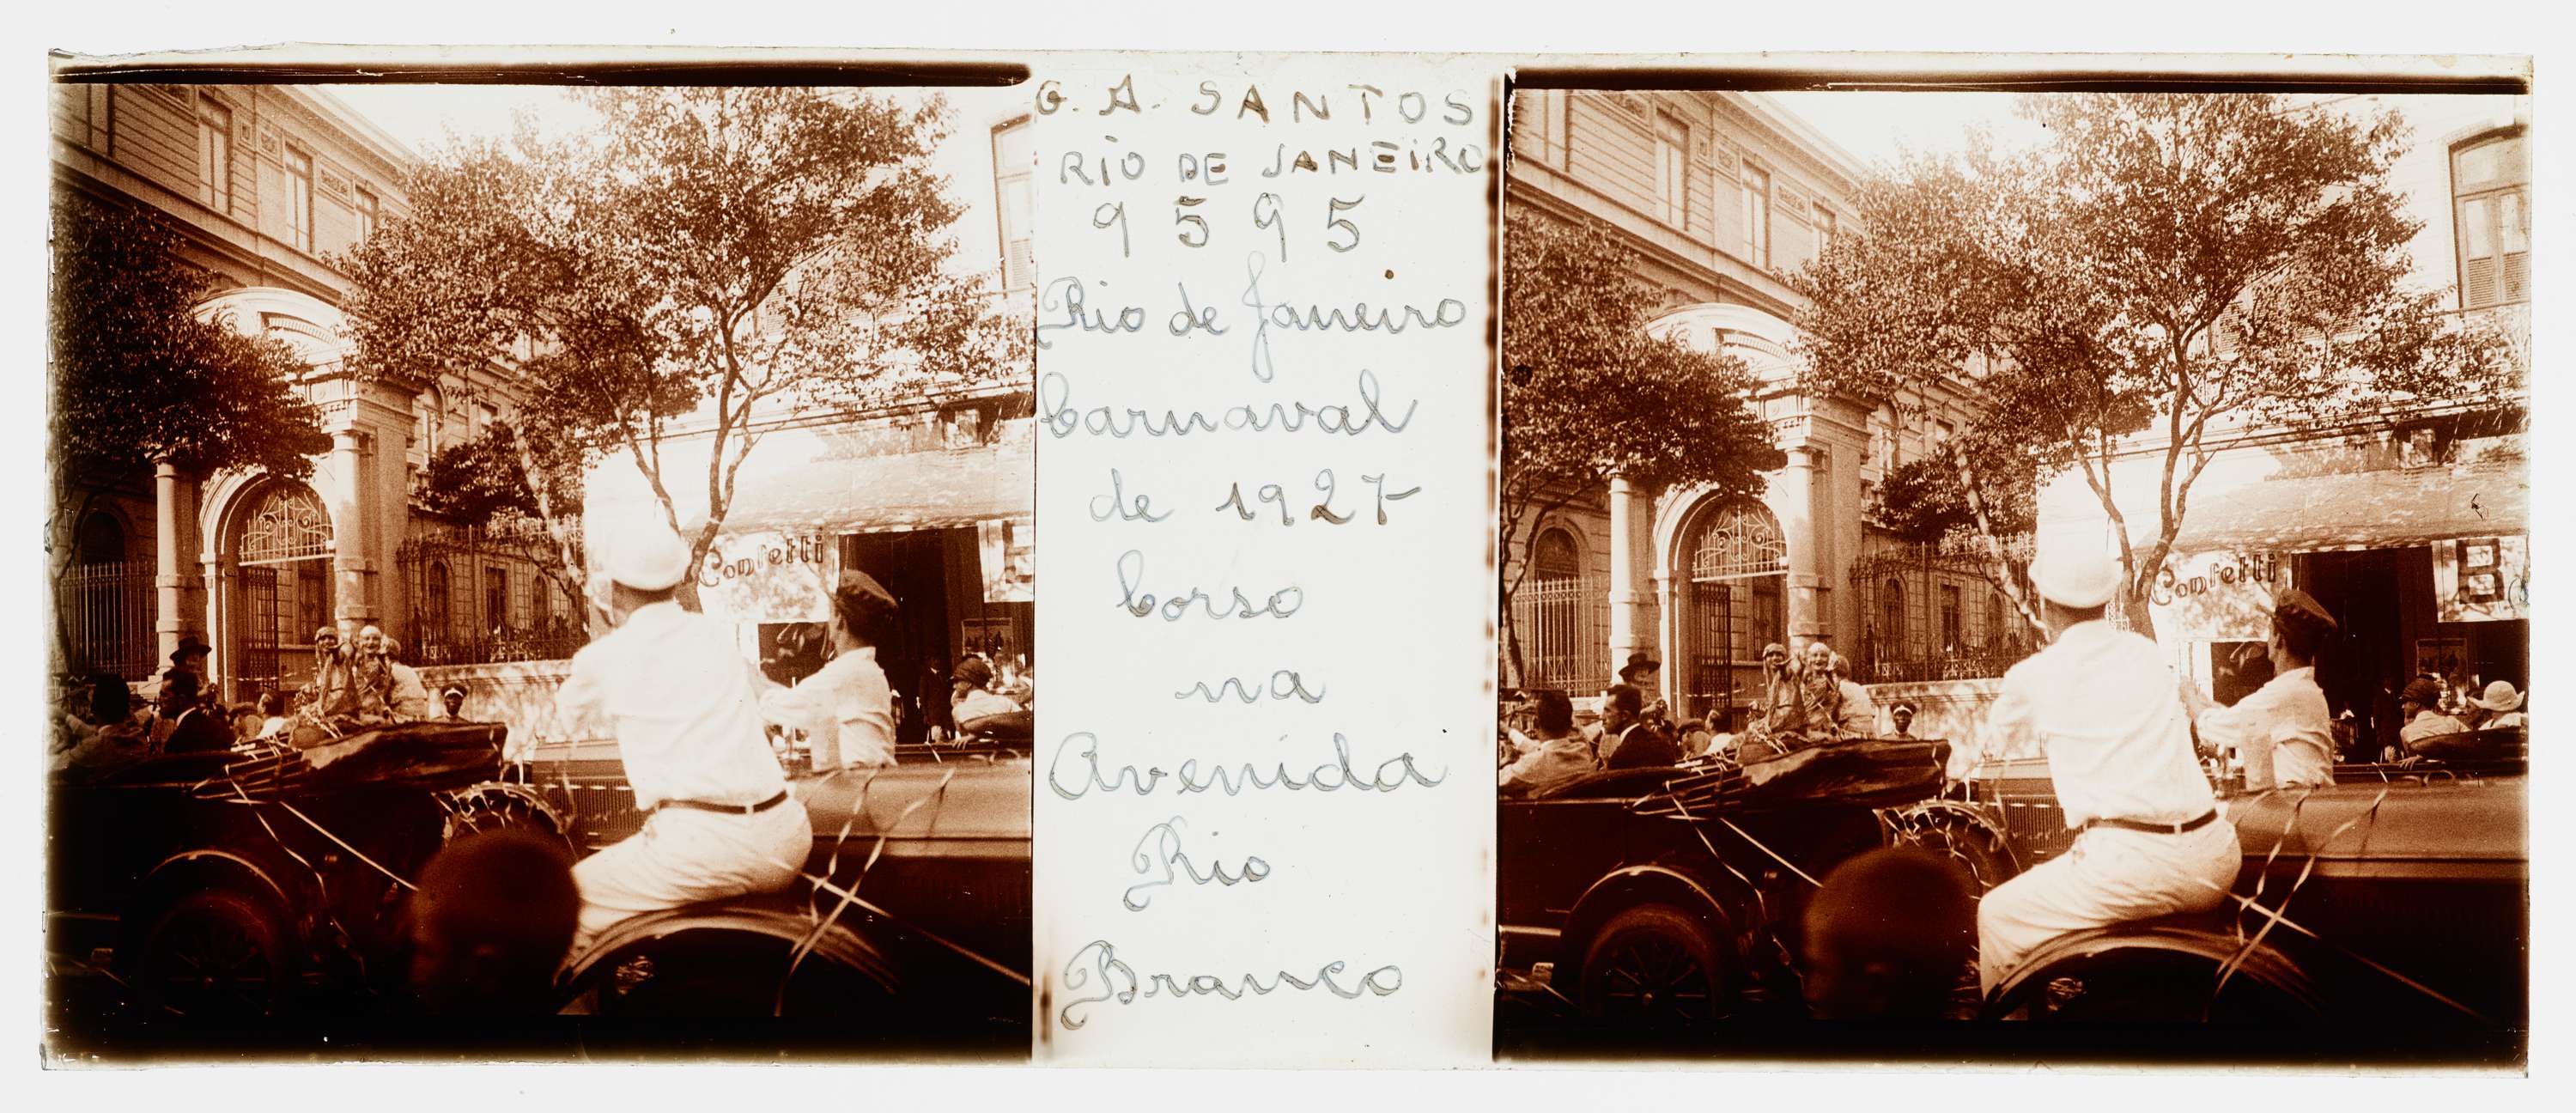 G. A. SANTOS
RIO DE JANEIRO
9595
Rio de Janeiro
Carnaval
de 1927
Corso
na
Avenida
Rio
Branco
Confetti
Confetti
B